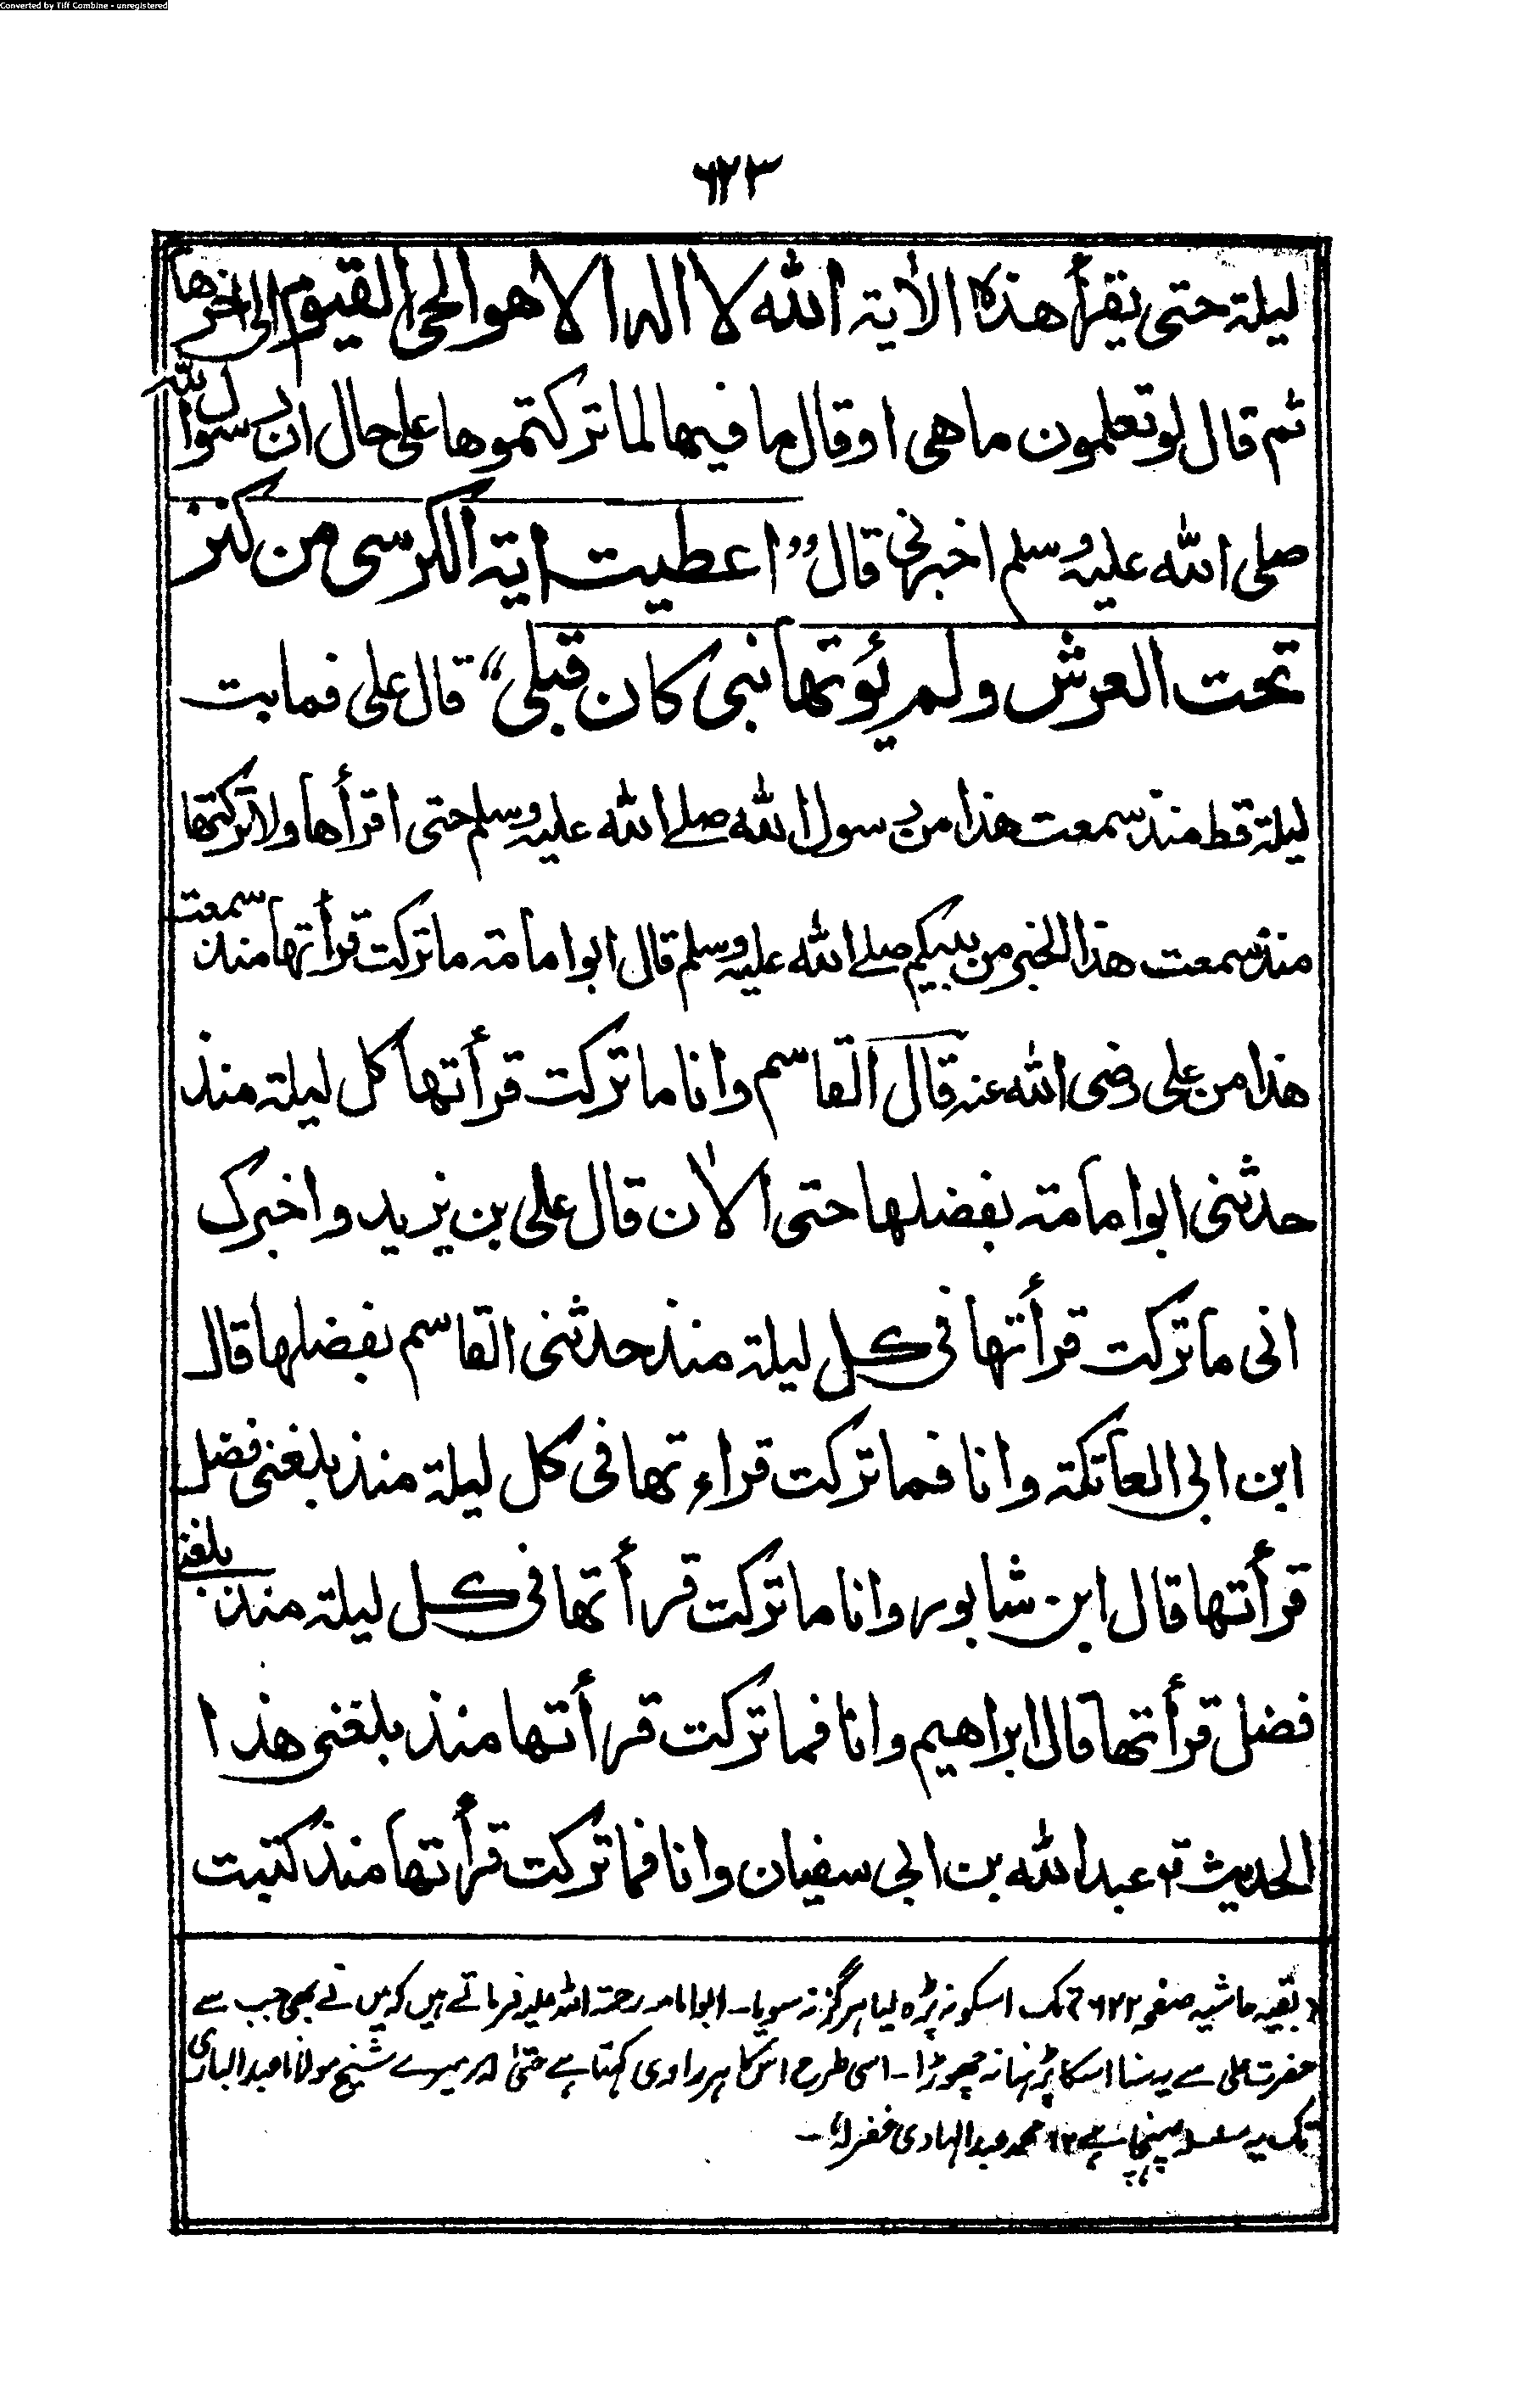 Converted by Tiff Combine - unregistered
۶۲۳
ليلة حتى يقرأ هذه الاٰية الله لا اله الا هو الحى القيوم الى اٰخرها
ثم قال لو تعلمون ما هى او قال ما فيها لما تركتموها على حال ان رسول الله
صلى الله عليه وسلم اخبرنى قال ״اعطيت اية الكرسى من كنز
تحت العرش ولم يؤتها نبى كان قبلى״ قال على فما بت
ليلة قط منذ سمعت هذا من رسول الله صلے الله عليه وسلم حتى اقرأها ولا تركتها
منذ سمعت هذا الخبر من نبيكم صلے الله عليه وسلم قال ابوامامة ما تركت قرأتها منذ سمعت
هذا من على رضى الله عنه قال القاسم وانا ما تركت قرأتها كل ليلة منذ
حدثنى ابوامامة بفضلها حتى الاٰن قال على بن يزيد واخبرك
انى ما تركت قرأتها فى كل ليلة منذ حدثنى القاسم بفضلها قال
ابن ابى العاتكة وانا فما تركت قراءتها فى كل ليلة منذ بلغنى فضل
قرأتها قال ابن شابور وانا ما تركت قرأتها فى كل ليلة منذ بلغنى
فضل قرأتها قال ابراهيم وانا فما تركت قرأتها منذ بلغنى هذا
الحديث عبدالله بن ابى سفيان وانا فما تركت قرأتها منذ كتبت
(بقیہ حاشیہ صفحہ ۶۲۲) تک اسکو نہ پڑہ لیا ہرگز نہ سویا۔ ابوامامہ رحمۃ اللہ علیہ فرماتے ہیں کہ میں نے بھی جب سے
حضرت علی سے یہ سنا اسکا پڑہنا نہ چھوڑا۔ اسی طرح اس کا ہر راوی کہتا ہے حتیٰ کہ میرے شیخ مولانا عبدالباری
تک یہ سلسلہ پہنچا ہے ۱۲ محمد عبدالہادی غفرلہٗ۔